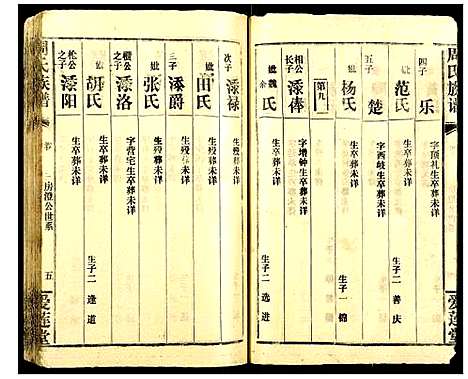 周氏族譜
四子 乐 字顶礼生卒葬未详
妣 范氏 生卒葬未详 生子二 善 庆
五子 楚 字西岐生卒葬未详
妣 杨氏 生卒葬未详 生子一 锦
第九
相公长子 漆俸 字增钟生卒葬未详
妣 魏余氏 生卒葬未详 生子二 选 进
次子 漆禄 生殁葬未详
妣 田氏 生殁葬未详
三子 漆爵 生殁葬未详
妣 张氏 生殁葬未详
樱公之子 漆洛 字营宅生卒葬未详
妣 胡氏 生卒葬未详 生子二 逢 道
松公之子 漆阳 生卒葬未详
周氏族譜
房澄公世系
五
爱莲堂
爱莲堂